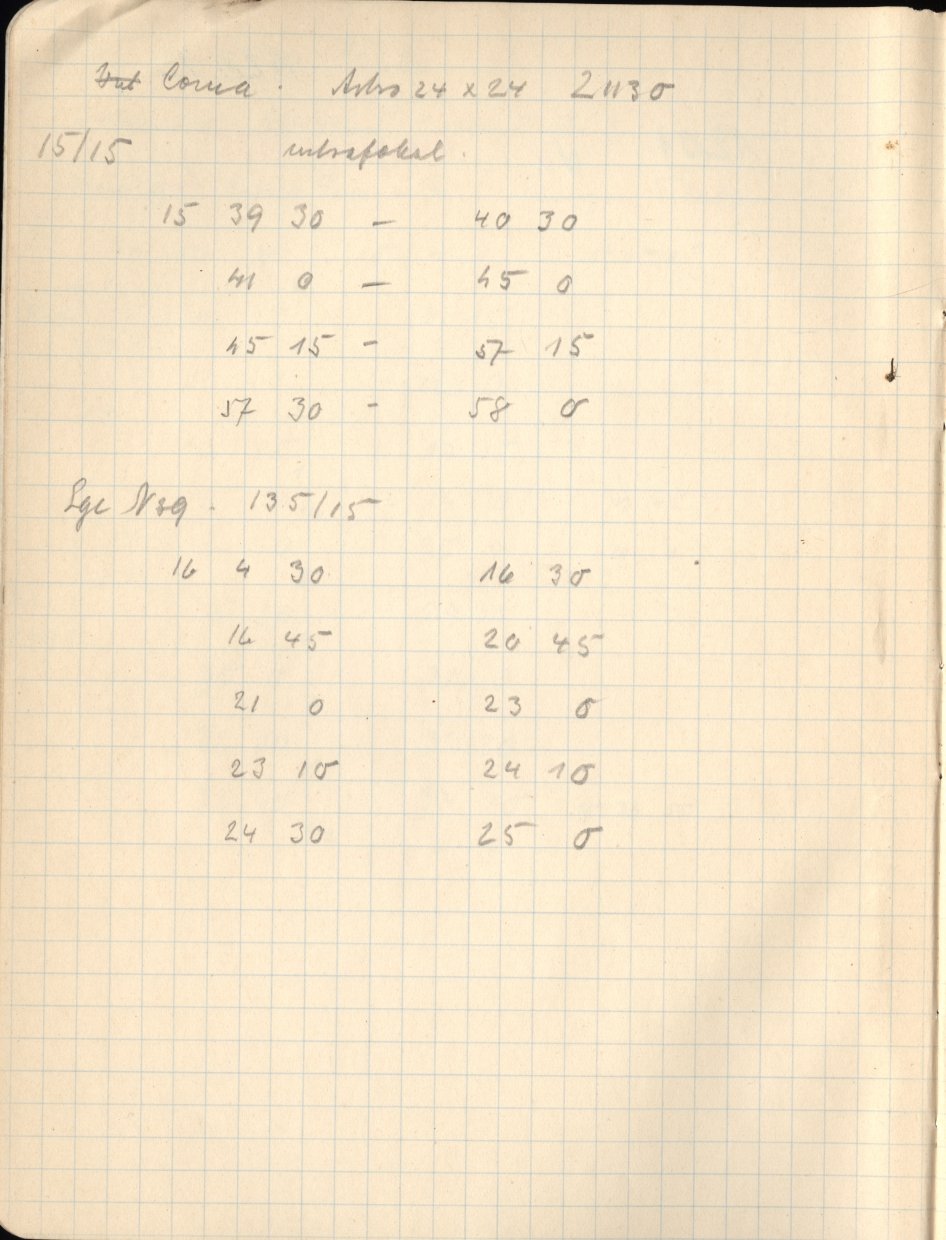 Coma. Astro 24 x 24 Z 1130
15/15 intrafokal.
15 39 30 — 40 30
41 0 — 45 0
45 15 - 57 15
57 30 - 58 0
135/15
16 4 30 16 30
16 45 20 45
21 0 23 0
23 10 24 10
24 30 25 0